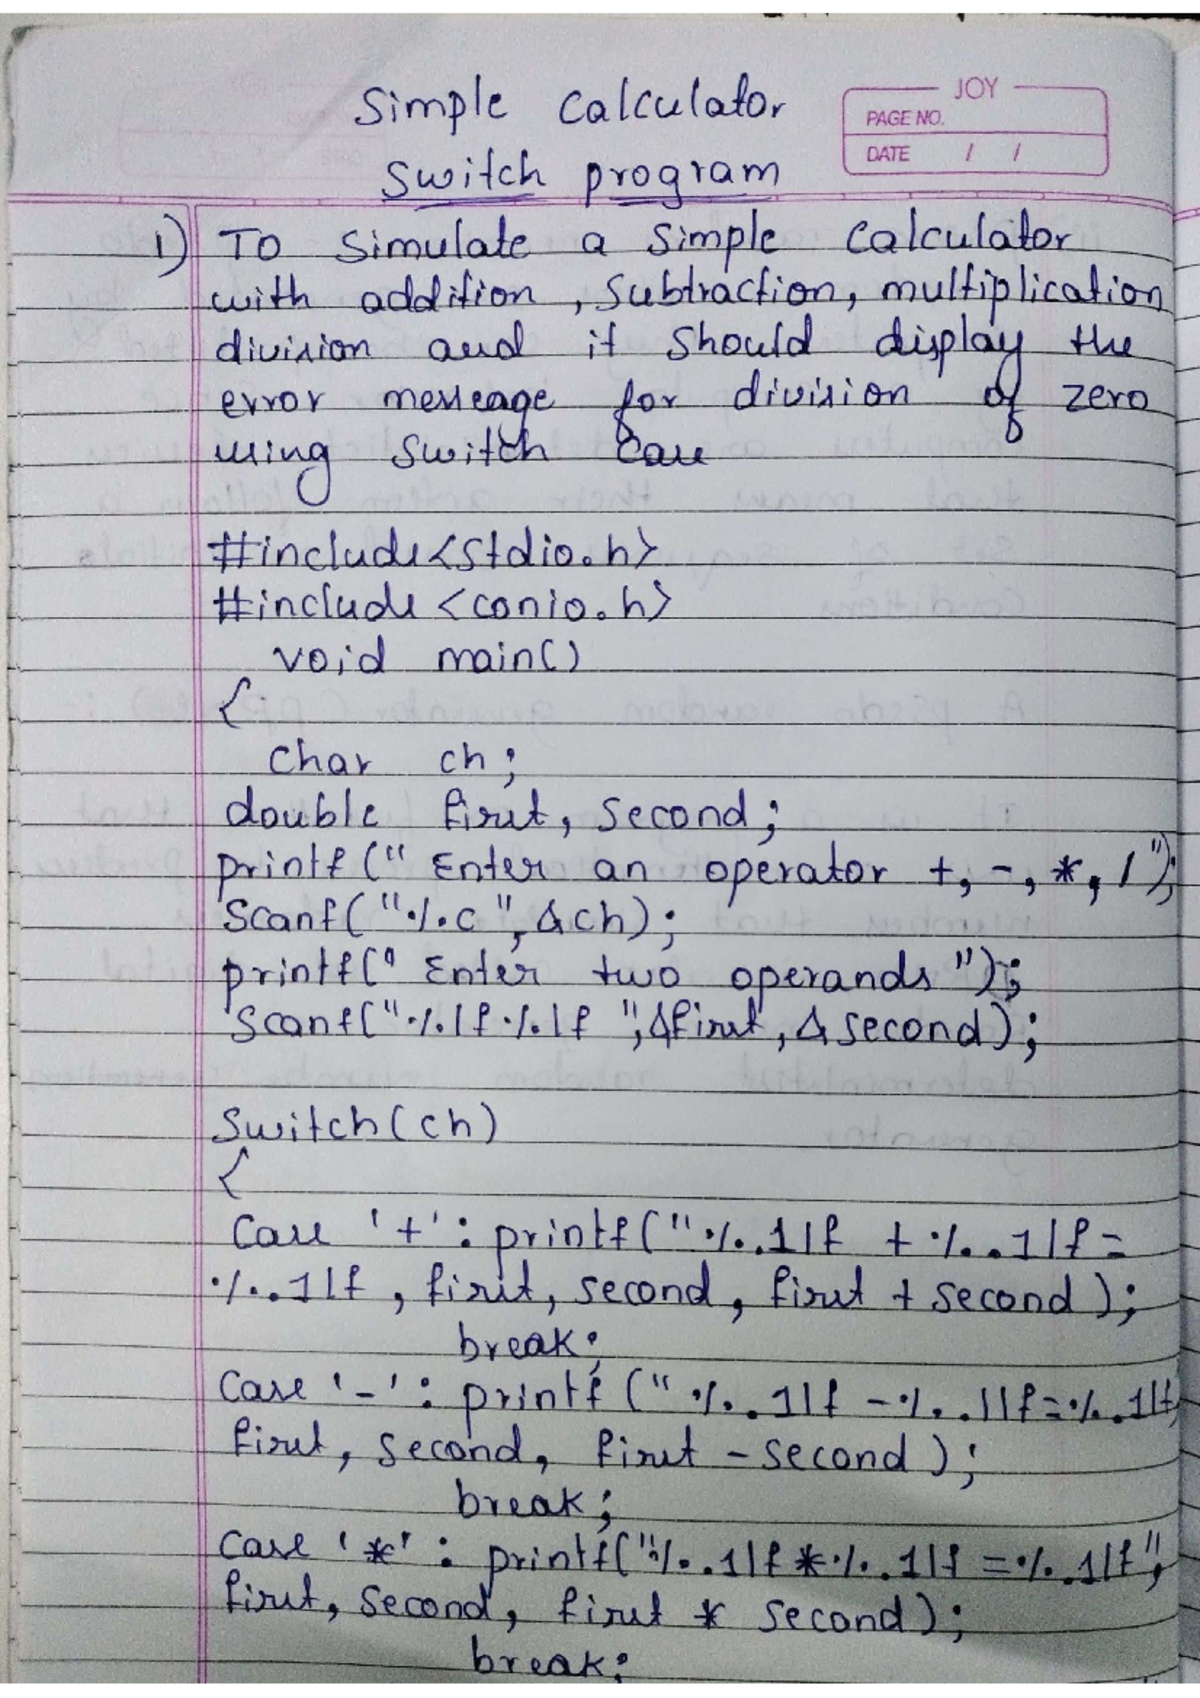 Simple Calculator
Switch program
JOY
PAGE NO.
DATE / /
1) To Simulate a Simple Calculator
with addition, Subtraction, multiplication
division and it should display the
error message for division of zero
using Switch Case
#include<stdio.h>
#include <conio.h>
void main()
{
char ch;
double first, second;
printf(" Enter an operator +, -, *, /");
Scanf("%c", &ch);
printf(" Enter two operands ");
Scanf("%lf%lf ", &first, & second);
Switch(ch)
{
Case '+': printf("%.1lf + %..1lf =
%..1lf , first, second, first + second);
break;
Case '-': printf (" %..1lf - %..1lf=%..1lf,
first, second, first - second);
break;
Case '*' : printf("%..1lf * %..1lf = %.1lf",
first, second, first * second);
break;